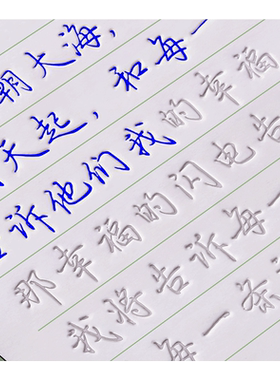 朝大海，
天起，和每一
诉他们我的幸福
那幸福的闪电告
我将告诉每一
每一条